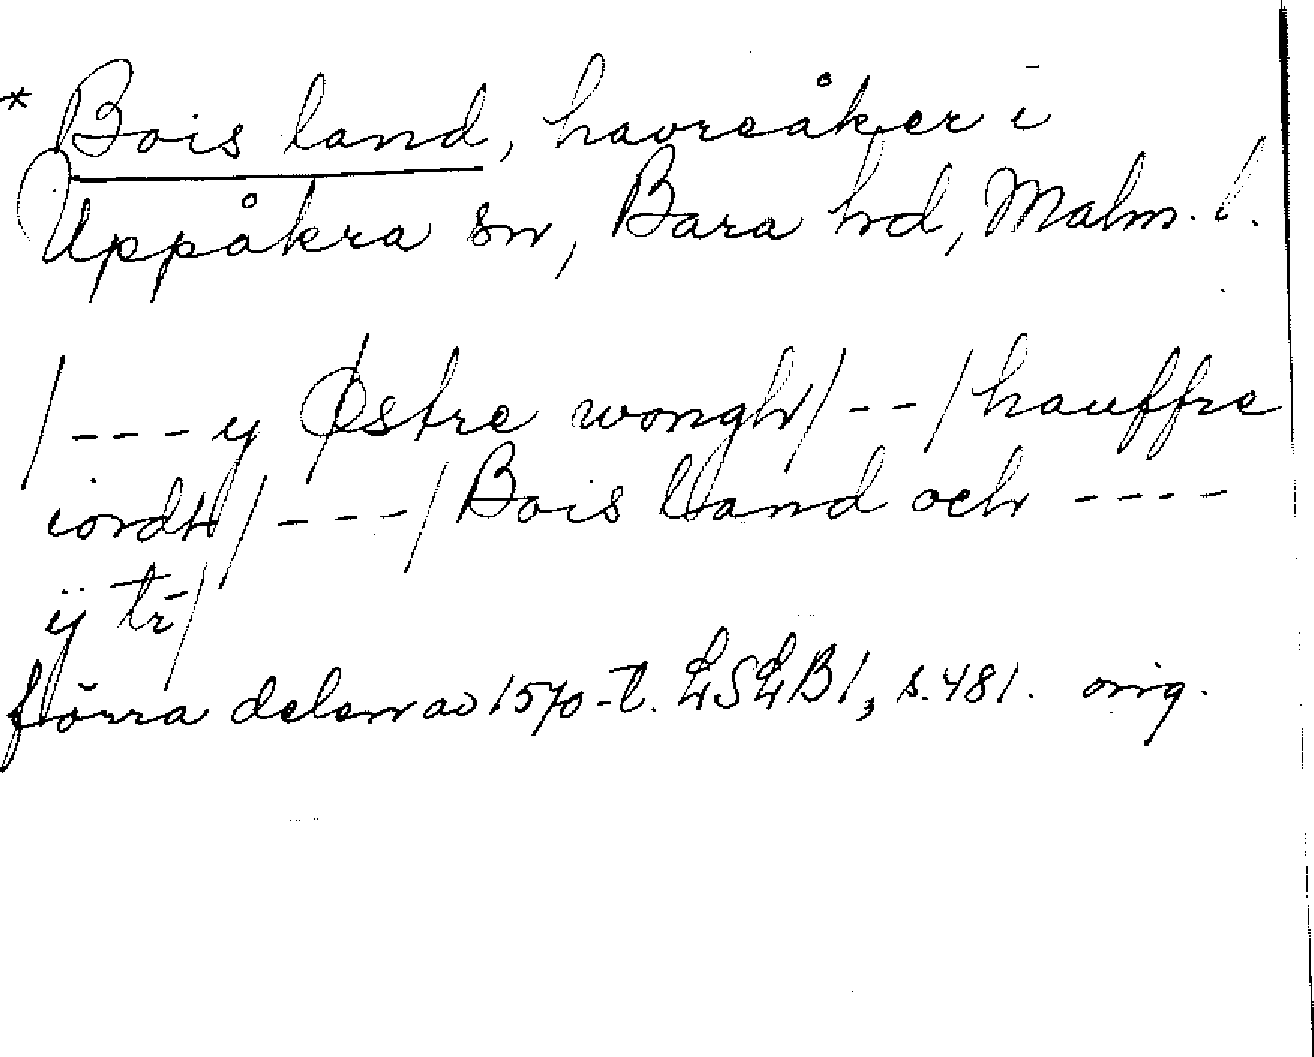 * Bois land, havreåker i
Uppåkra sn, Bara hd, Malm. l.
/---y Østre wongh/--/hauffre
iordh/---/Bois land och ----
ÿ tr/
förra delen av 1570-t. LSLB1, s.481. orig.